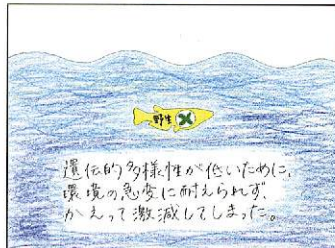 野生
遺伝的多様性が低いために、
環境の急変に耐えられず、
かえって激減してしまった。